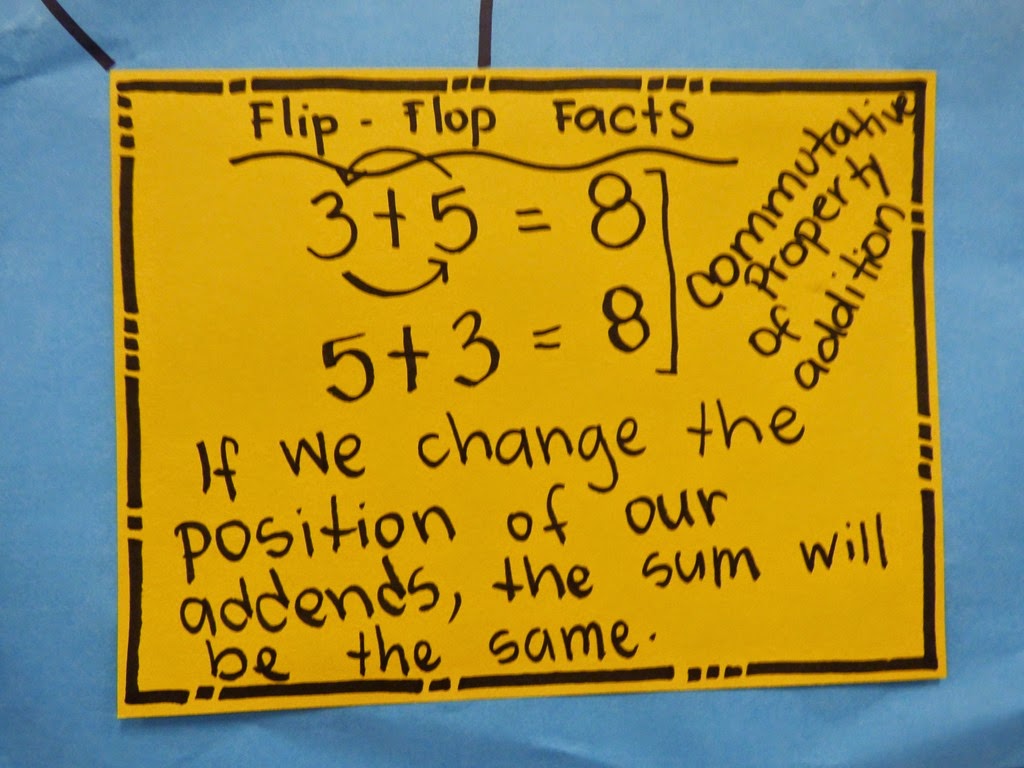 Flip - Flop Facts
3 + 5 = 8
5 + 3 = 8
Commutative
Property
of
addition
If we change the
position of our
addends, the sum will
be the same.